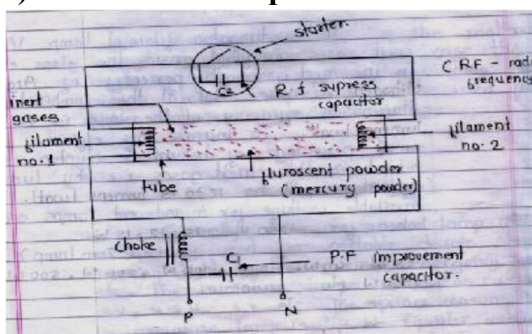 starter
C2
R.f supress
capacitor
(RF - radio
frequency
inert
gases
filament
no. 1
filament
no. 2
tube
fluroscent powder
(mercury powder)
choke
C1
P.F improvement
capacitor.
P
N